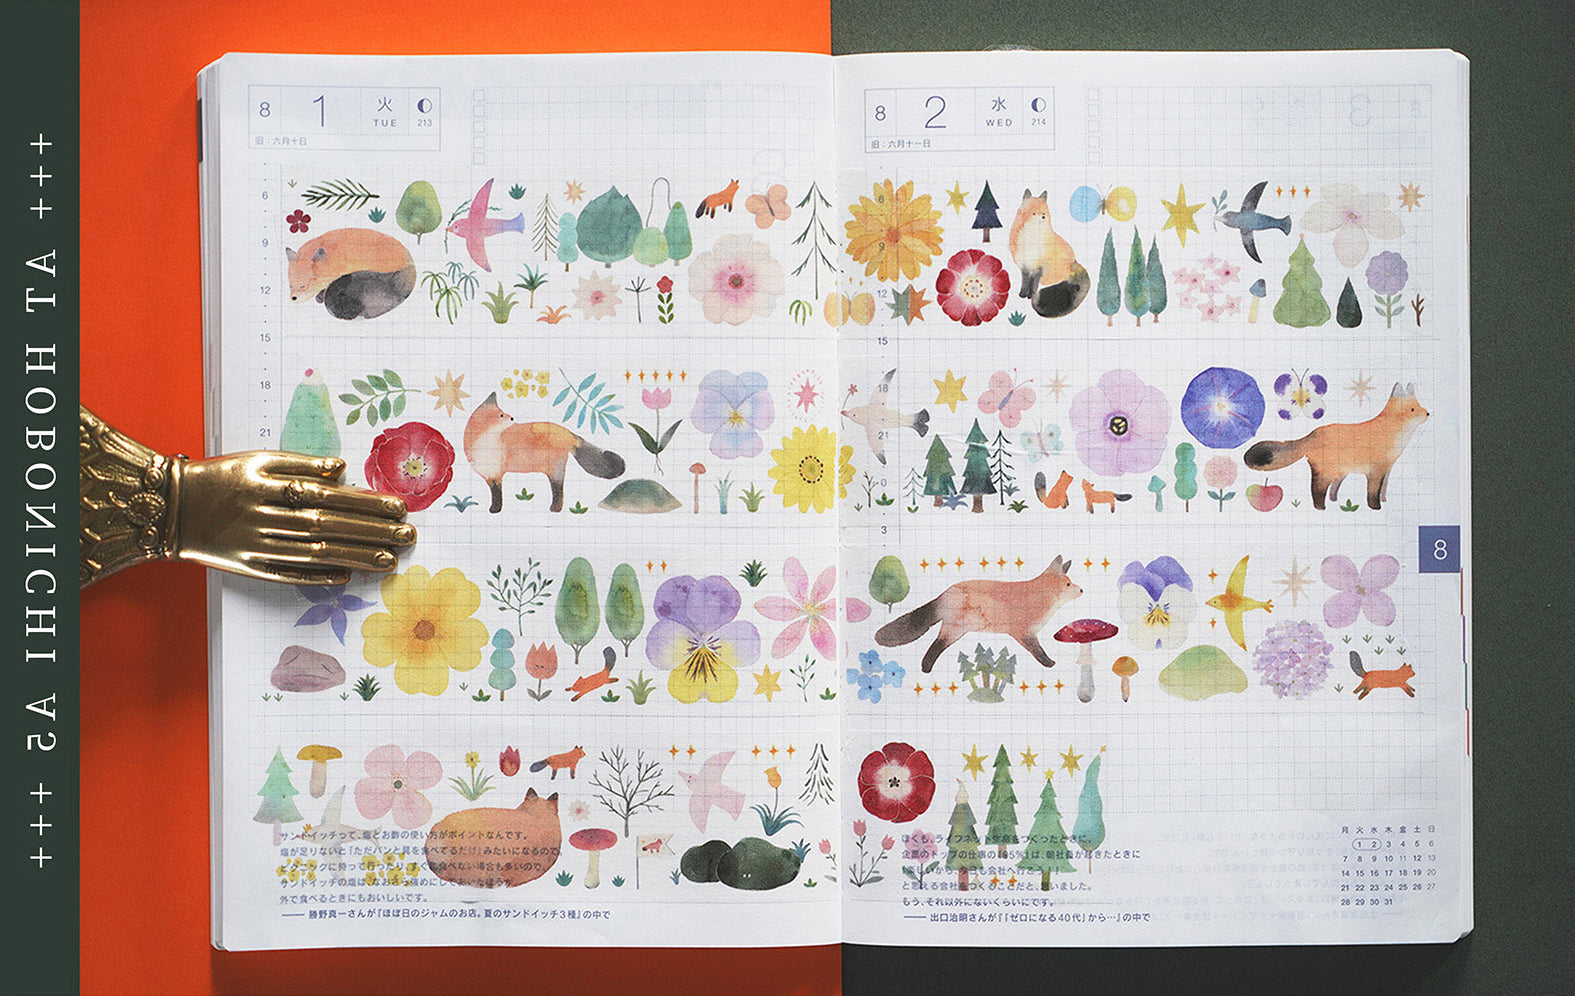 +++ AT HOBONICHI A5 +++
8 1 火 TUE 213
旧：六月十日
6
9
12
15
18
21
サンドイッチって、塩とお酢の使い方がポイントなんです。
塩が足りないと「ただパンと具を食べてるだけ」みたいになるので。
ピクニックに持って行ったり、すぐに食べない場合も多いので、
サンドイッチの塩は、なおさら強めにしておいたほうが、
外で食べるときにもおいしいです。
—— 勝野真一さんが『ほぼ日のジャムのお店。夏のサンドイッチ3種』の中で
8 2 水 WED 214
旧：六月十一日
6
9
12
15
18
21
0
3
8
ぼくも、ライフネット生命をつくったときに、
企業のトップの仕事の「95%」は、朝社員が起きたときに
「楽しいから、今日も会社へ行こう！」
と思える会社をつくることだと、思いました。
もう、それ以外にないくらいにです。
—— 出口治明さんが『「ゼロになる40代」から…』の中で
月 火 水 木 金 土 日
1 2 3 4 5 6
7 8 9 10 11 12 13
14 15 16 17 18 19 20
21 22 23 24 25 26 27
28 29 30 31